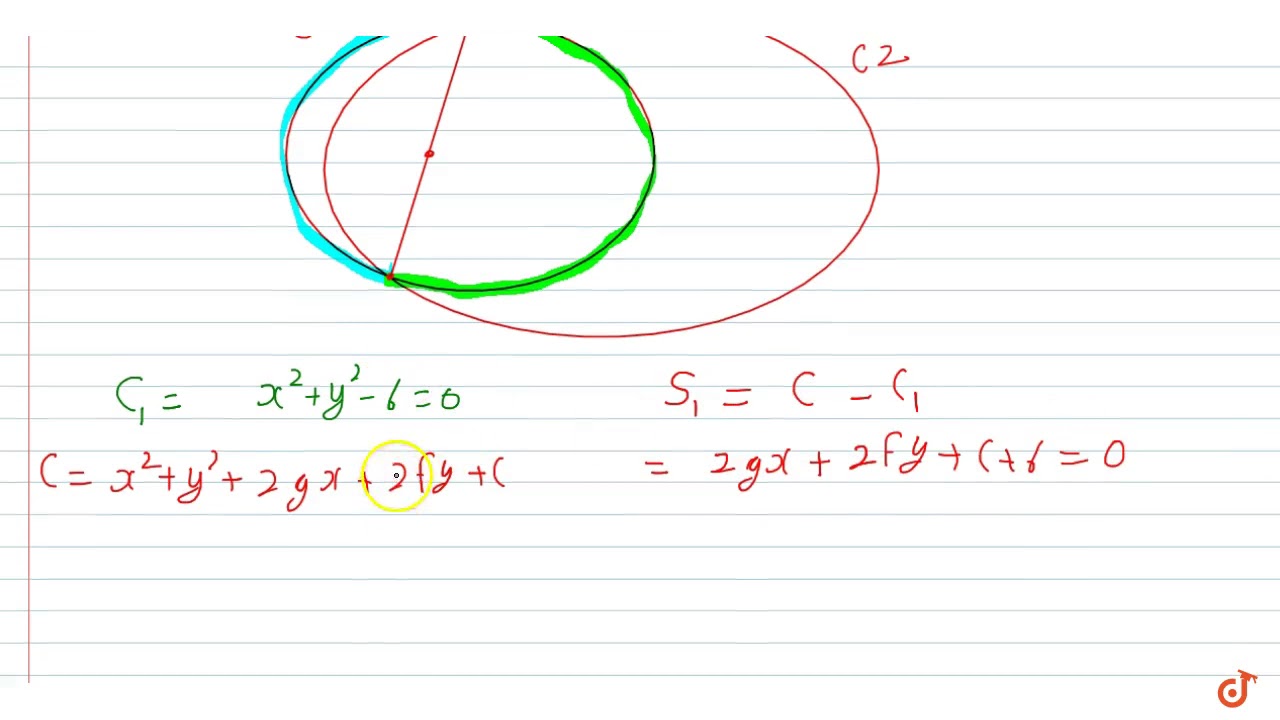 C2
C₁ = x² + y² - 6 = 0
S₁ = C - C₁
C = x² + y² + 2gx + 2fy + C
= 2gx + 2fy + C + 6 = 0